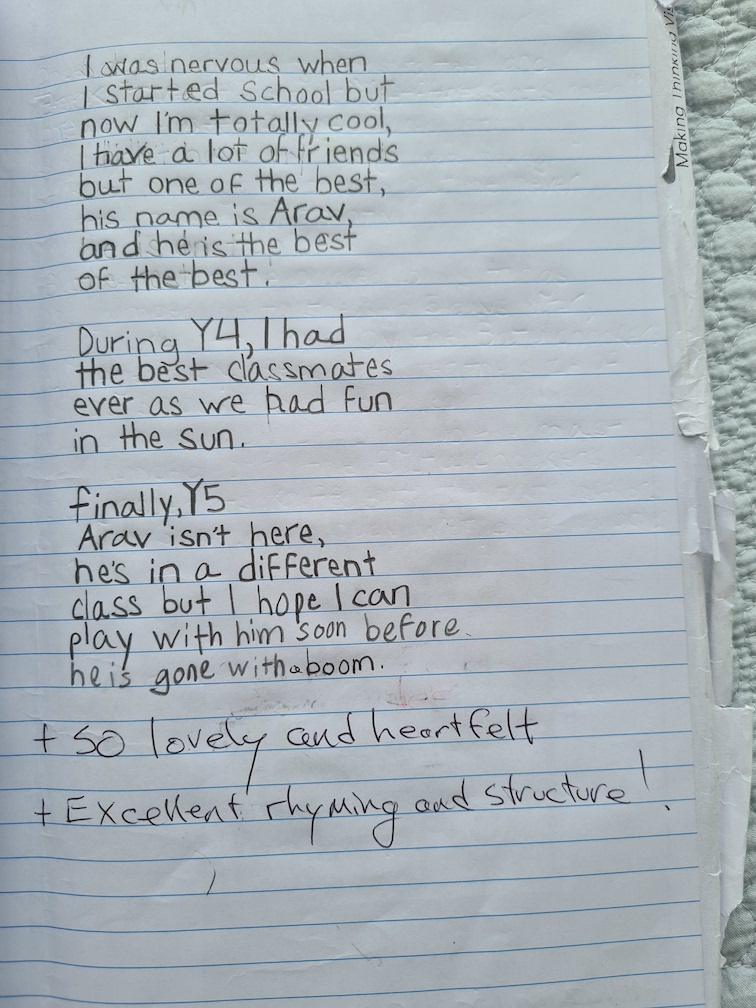 I was nervous when
I started School but
now I'm totally cool,
I have a lot of friends
but one of the best,
his name is Arav,
and he is the best
of the best.
During Y4, I had
the best classmates
ever as we had fun
in the sun.
finally, Y5
Arav isn't here,
he's in a different
class but I hope I can
play with him soon before
he is gone with a boom.
+ So lovely and heartfelt
+ Excellent rhyming and structure!
Making Thinking